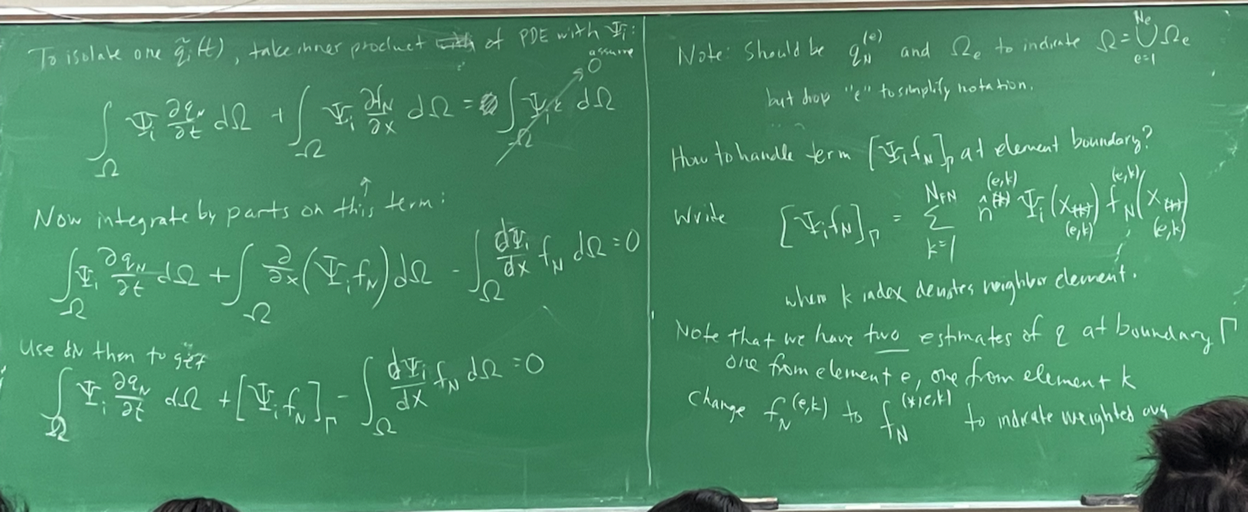 To isolate one q̃ᵢ(t), take inner product of PDE with Ψᵢ:
assume
∫_Ω Ψᵢ ∂q_N/∂t dΩ + ∫_Ω Ψᵢ ∂f_N/∂x dΩ = ∫_Ω Ψᵢ ε dΩ → 0
Now integrate by parts on this term:
∫_Ω Ψᵢ ∂q_N/∂t dΩ + ∫_Ω ∂/∂x (Ψᵢ f_N) dΩ - ∫_Ω dΨᵢ/dx f_N dΩ = 0
Use div thm to get
∫_Ω Ψᵢ ∂q_N/∂t dΩ + [Ψᵢ f_N]_Γ - ∫_Ω dΨᵢ/dx f_N dΩ = 0
Note: Should be q_N^(e) and Ω_e to indicate Ω = ⋃_{e=1}^{N_e} Ω_e
but drop "e" to simplify notation.
How to handle term [Ψᵢ f_N]_Γ at element boundary?
Write [Ψᵢ f_N]_Γ = Σ_{k=1}^{N_FN} n̂^(e,k) Ψᵢ(x_(e,k)) f_N^(e,k)(x_(e,k))
where k index denotes neighbor element.
Note that we have two estimates of q at boundary Γ
one from element e, one from element k
Change f_N^(e,k) to f_N^(*,e,k) to indicate weighted avg